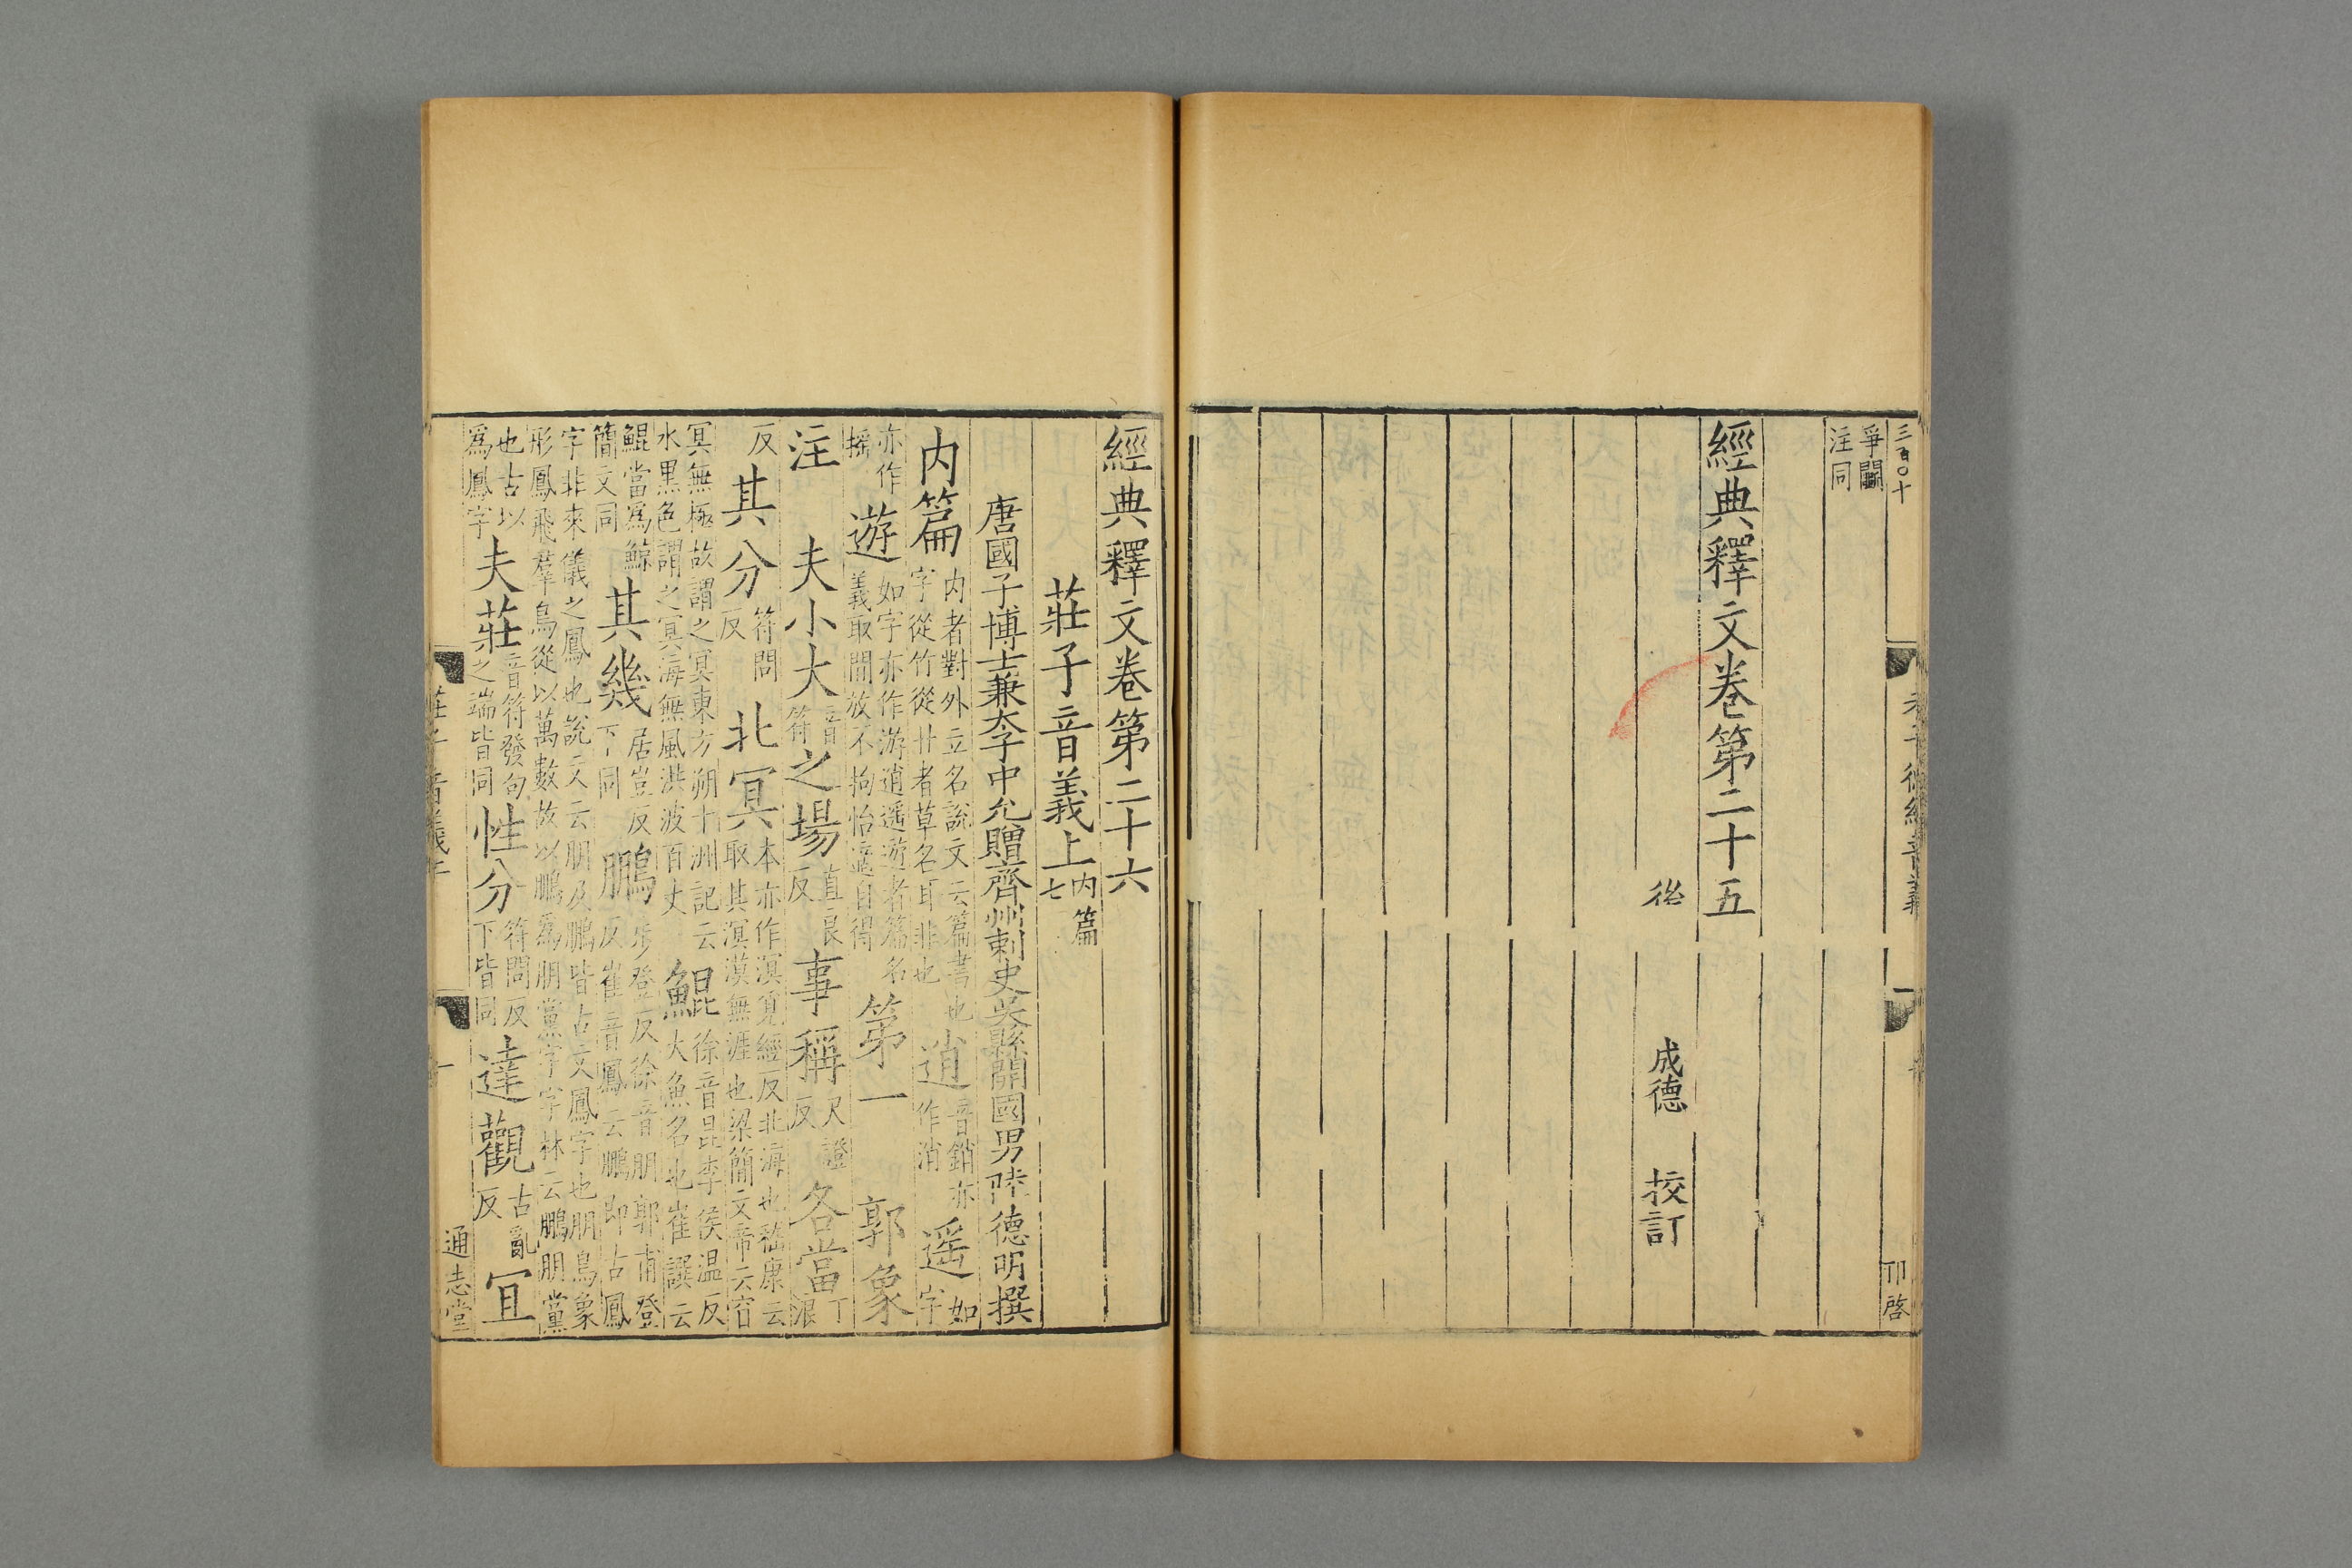 三百〇十
老子德經音義 一
爭鬭注同
經典釋文卷第二十五
後 成德 挍訂
經典釋文卷第二十六
莊子音義上內篇七
唐國子博士兼太子中允贈齊州刺史吳縣開國男陸德明撰
內篇內者對外立名說文云篇書也字從竹從艸者草名耳非也逍音銷亦作消遥如字
亦作搖遊如字亦作游逍遥遊者篇名義取閒放不拘怡適自得第一 郭象
注 夫小大音符之場直良反事稱尺證反各當丁浪
反其分符問反北冥本亦作溟覓經反北海也嵇康云取其溟漠無涯也梁簡文帝云窅
冥無極故謂之冥東方朔十洲記云水黑色謂之冥海無風洪波百丈鯤徐音昆李侯温反大魚名也崔譔云
鯤當爲鯨簡文同其幾居豈反下同鵬步登反徐音朋郭甫登反崔音鳳云鵬即古鳳
字非來儀之鳳也說文云朋及鵬皆古文鳳字也朋鳥象形鳳飛羣鳥從以萬數故以鵬爲朋黨字字林云鵬朋黨
也古以爲鳳字夫莊音符發句之端皆同性分符問反下皆同達觀古亂反宜
莊子音義上 一 通志堂